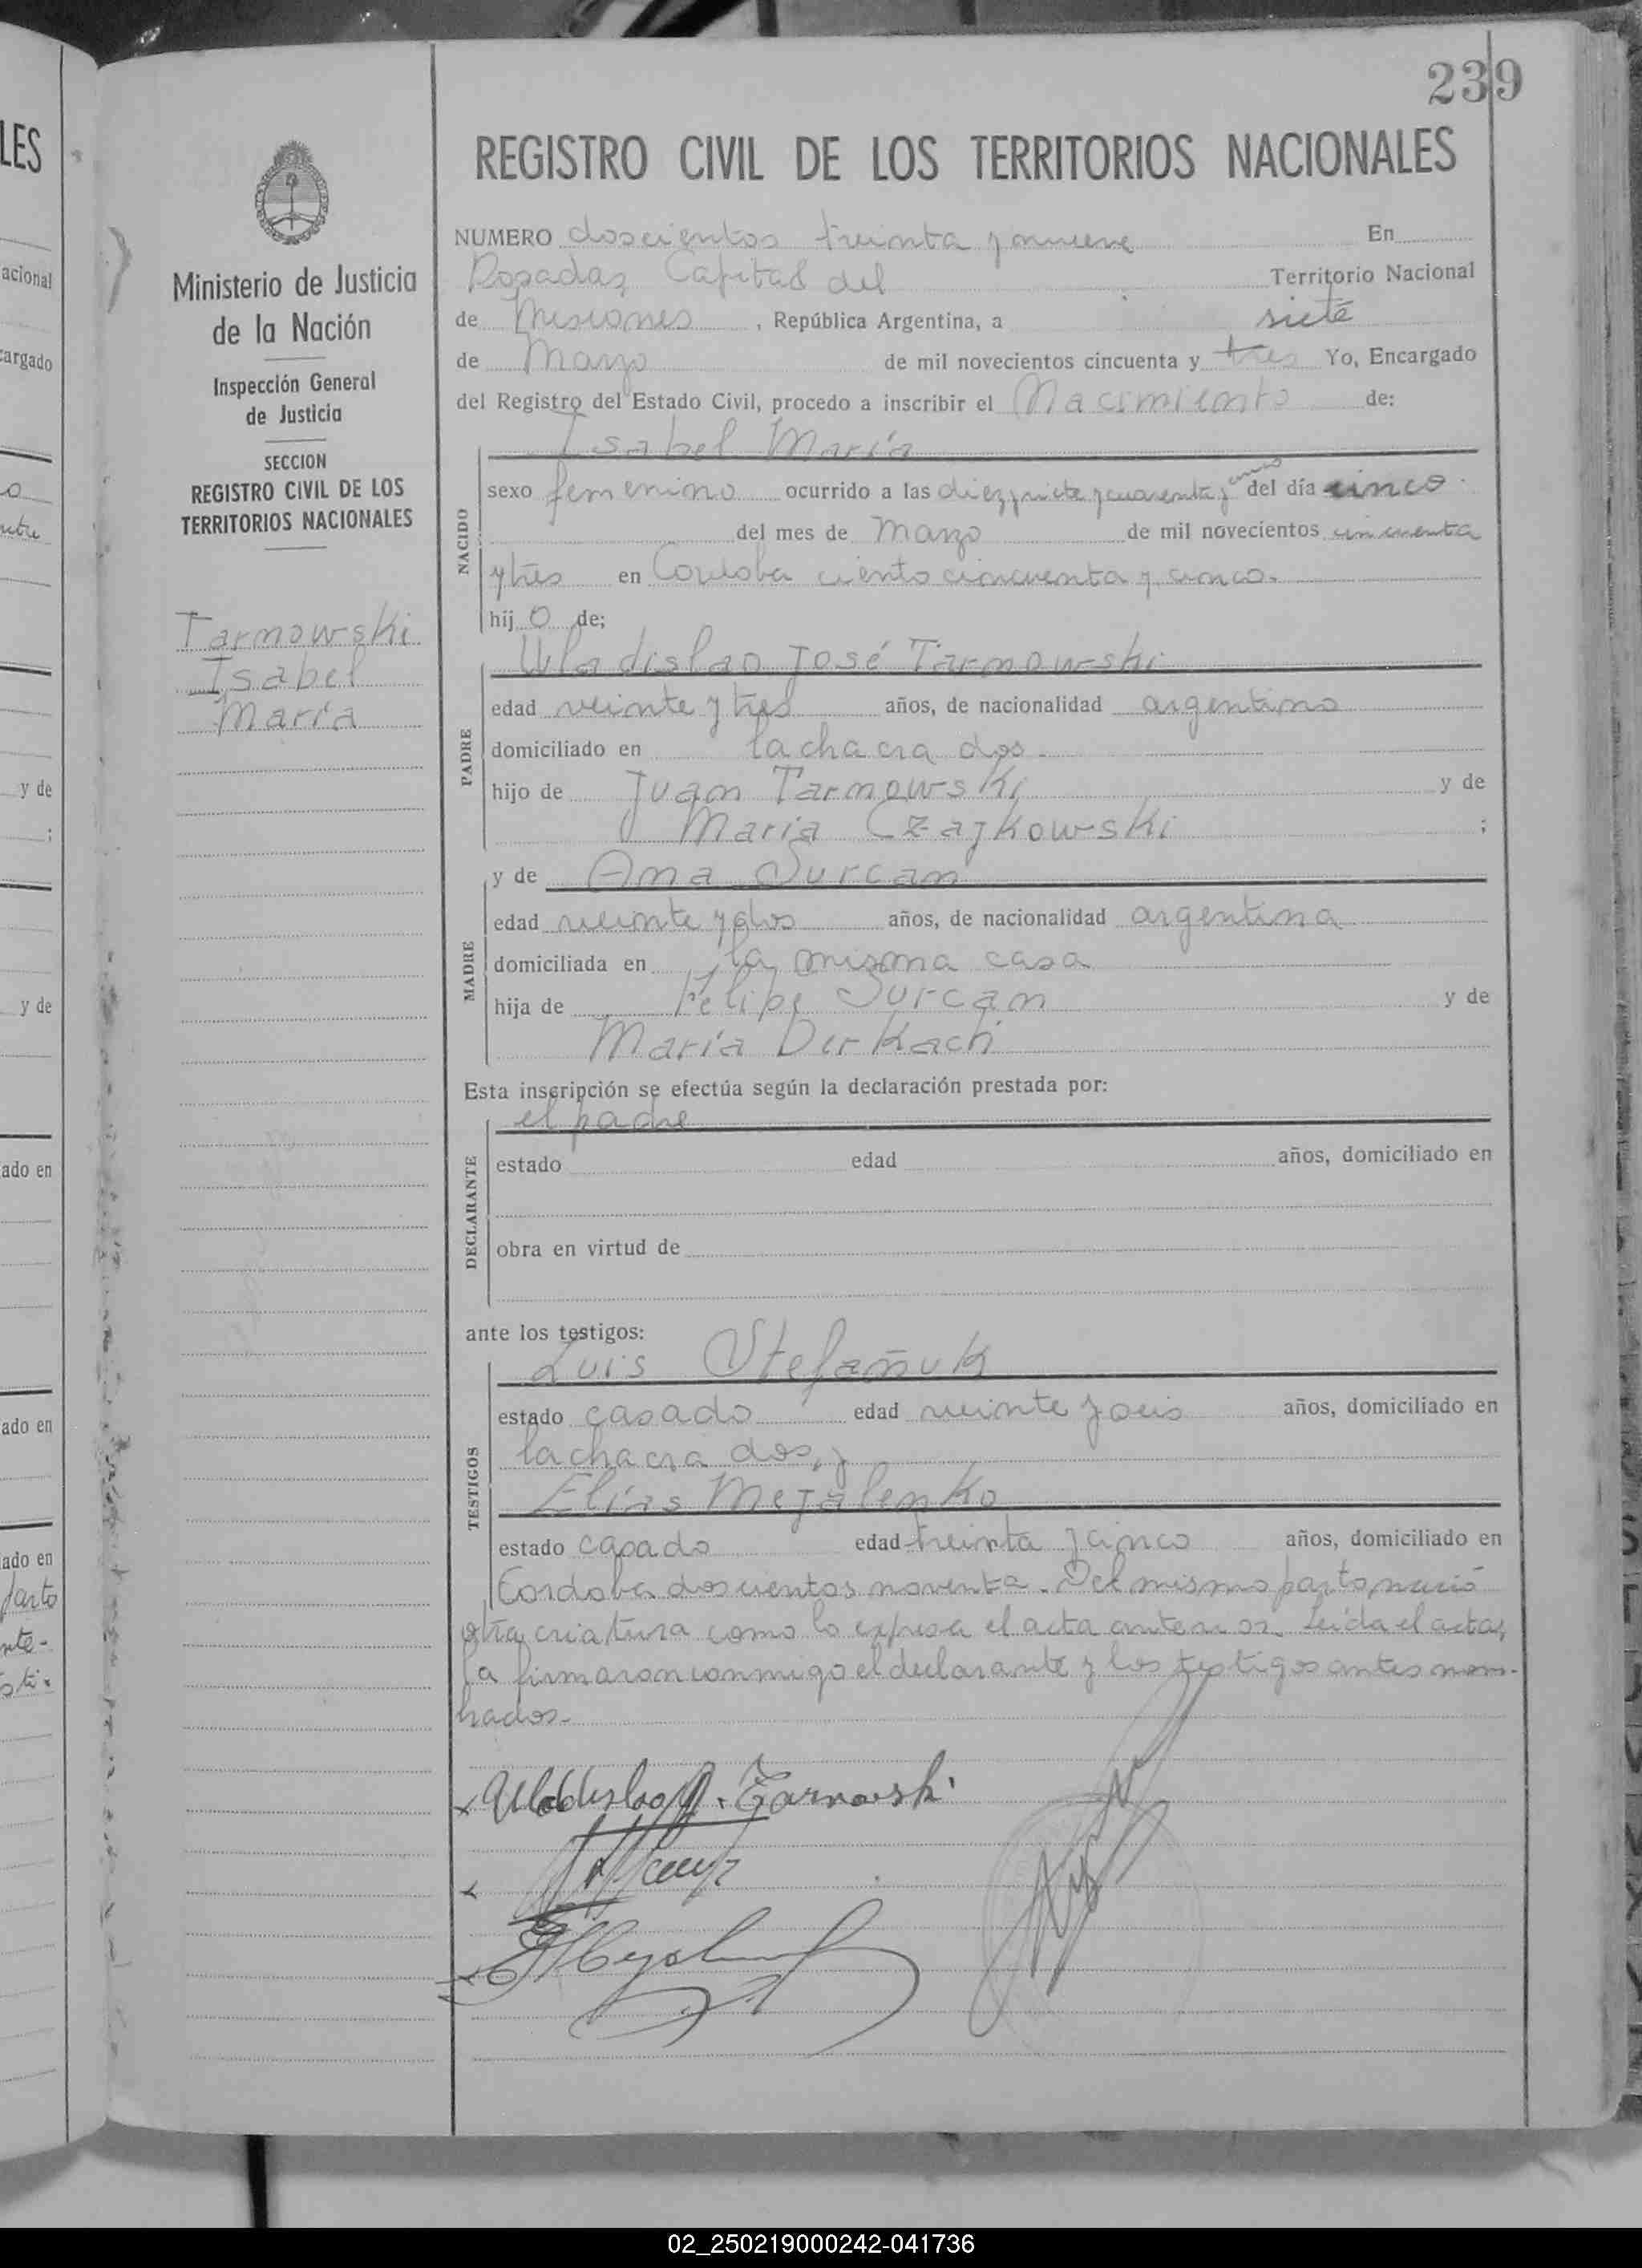 239
REGISTRO CIVIL DE LOS TERRITORIOS NACIONALES
Ministerio de Justicia
de la Nación
Inspección General
de Justicia
SECCION
REGISTRO CIVIL DE LOS
TERRITORIOS NACIONALES
Tarnowski
Isabel
María
NUMERO doscientos treinta y nueve En
Posadas, Capital del Territorio Nacional
de Misiones, República Argentina, a siete
de Marzo de mil novecientos cincuenta y tres Yo, Encargado
del Registro del Estado Civil, procedo a inscribir el Nacimiento de:
Isabel María
NACIDO
sexo femenino ocurrido a las diez y siete y cuarenta y cinco del día cinco
del mes de Marzo de mil novecientos cincuenta
y tres en Cordoba ciento cincuenta y cinco.
hij o de;
PADRE
Uladislao José Tarnowski
edad veinte y tres años, de nacionalidad argentino
domiciliado en la chacra dos
hijo de Juan Tarnowski y de
Maria Czajkowski ;
MADRE
y de Ana Surcan
edad veinte y dos años, de nacionalidad argentina
domiciliada en la misma casa
hija de Felipe Surcan y de
María Derkach
Esta inscripción se efectúa según la declaración prestada por:
DECLARANTE
el padre
estado edad años, domiciliado en
obra en virtud de
ante los testigos:
TESTIGOS
Luis Stefañuk
estado casado edad veinte y seis años, domiciliado en
la chacra dos, y
Elías Mejalenko
estado casado edad treinta y cinco años, domiciliado en
Cordoba doscientos noventa. Del mismo parto nació
otra criatura como lo expresa el acta anterior. Leída el acta,
la firmaron conmigo el declarante y los testigos antes nom-
brados.-
Uladislao J. Tarnowski
ES
acional
cargado
y de
;
y de
ado en
ado en
ado en
parto
02_250219000242-041736